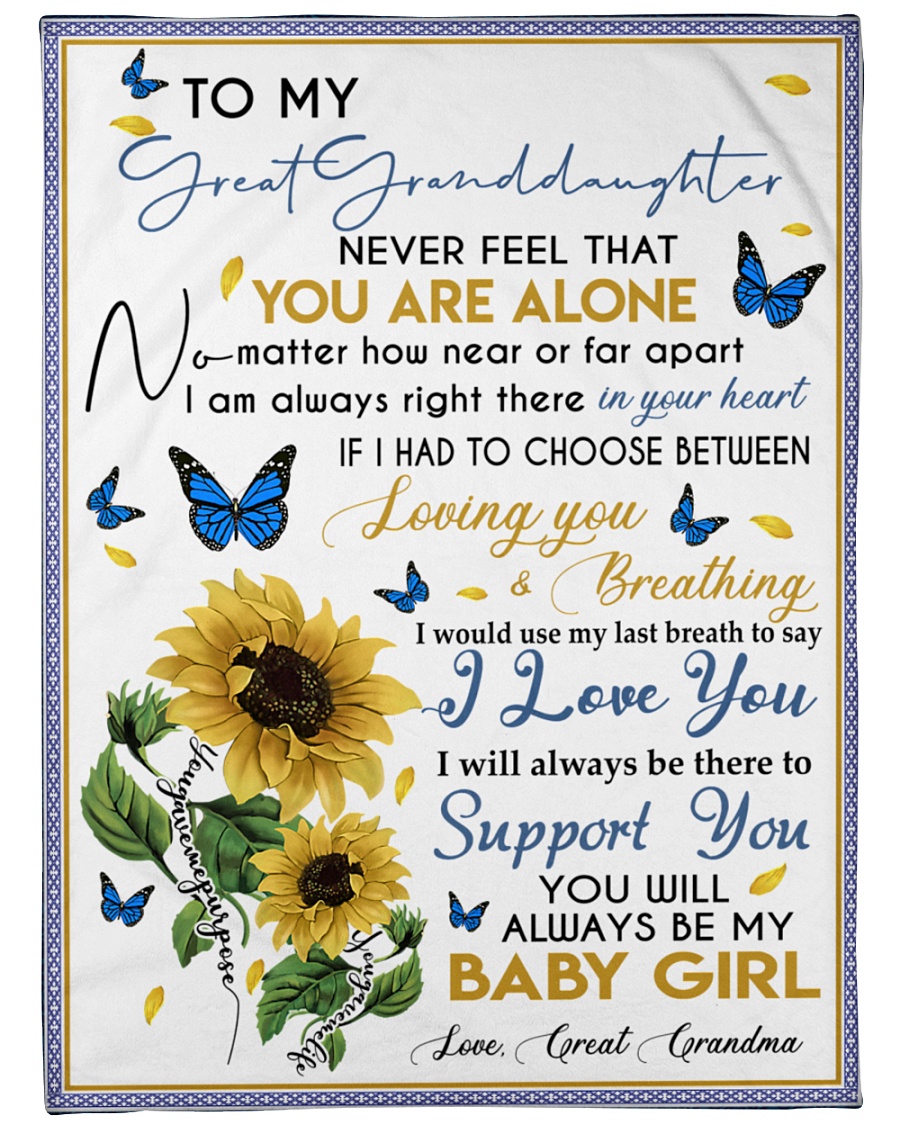 TO MY
Great Granddaughter
NEVER FEEL THAT
YOU ARE ALONE
No matter how near or far apart
I am always right there in your heart
IF I HAD TO CHOOSE BETWEEN
Loving you
& Breathing
I would use my last breath to say
I Love You
I will always be there to
Support You
YOU WILL
ALWAYS BE MY
BABY GIRL
Love, Great Grandma
Yougavemepurpose
Yougavemelife